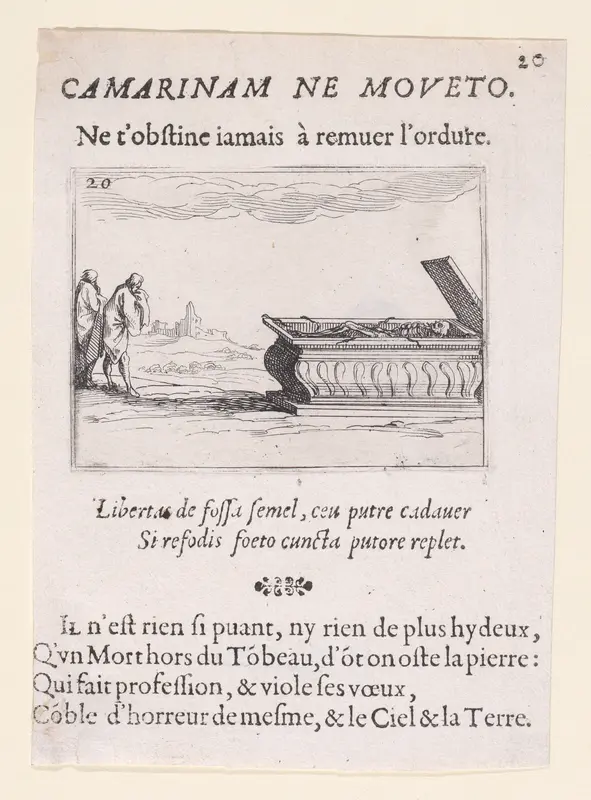 20
CAMARINAM NE MOVETO.
Ne t'obſtine iamais à remuer l'ordure.
20
Libertas de foſſa ſemel, ceu putre cadauer
Si refodis foeto cuncta putore replet.
IL n'eſt rien ſi puant, ny rien de plus hydeux,
Q'vn Mort hors du Tóbeau, d'ót on oſte la pierre:
Qui fait profeſſion, & viole ſes vœux,
Cóble d'horreur de meſme, & le Ciel & la Terre.